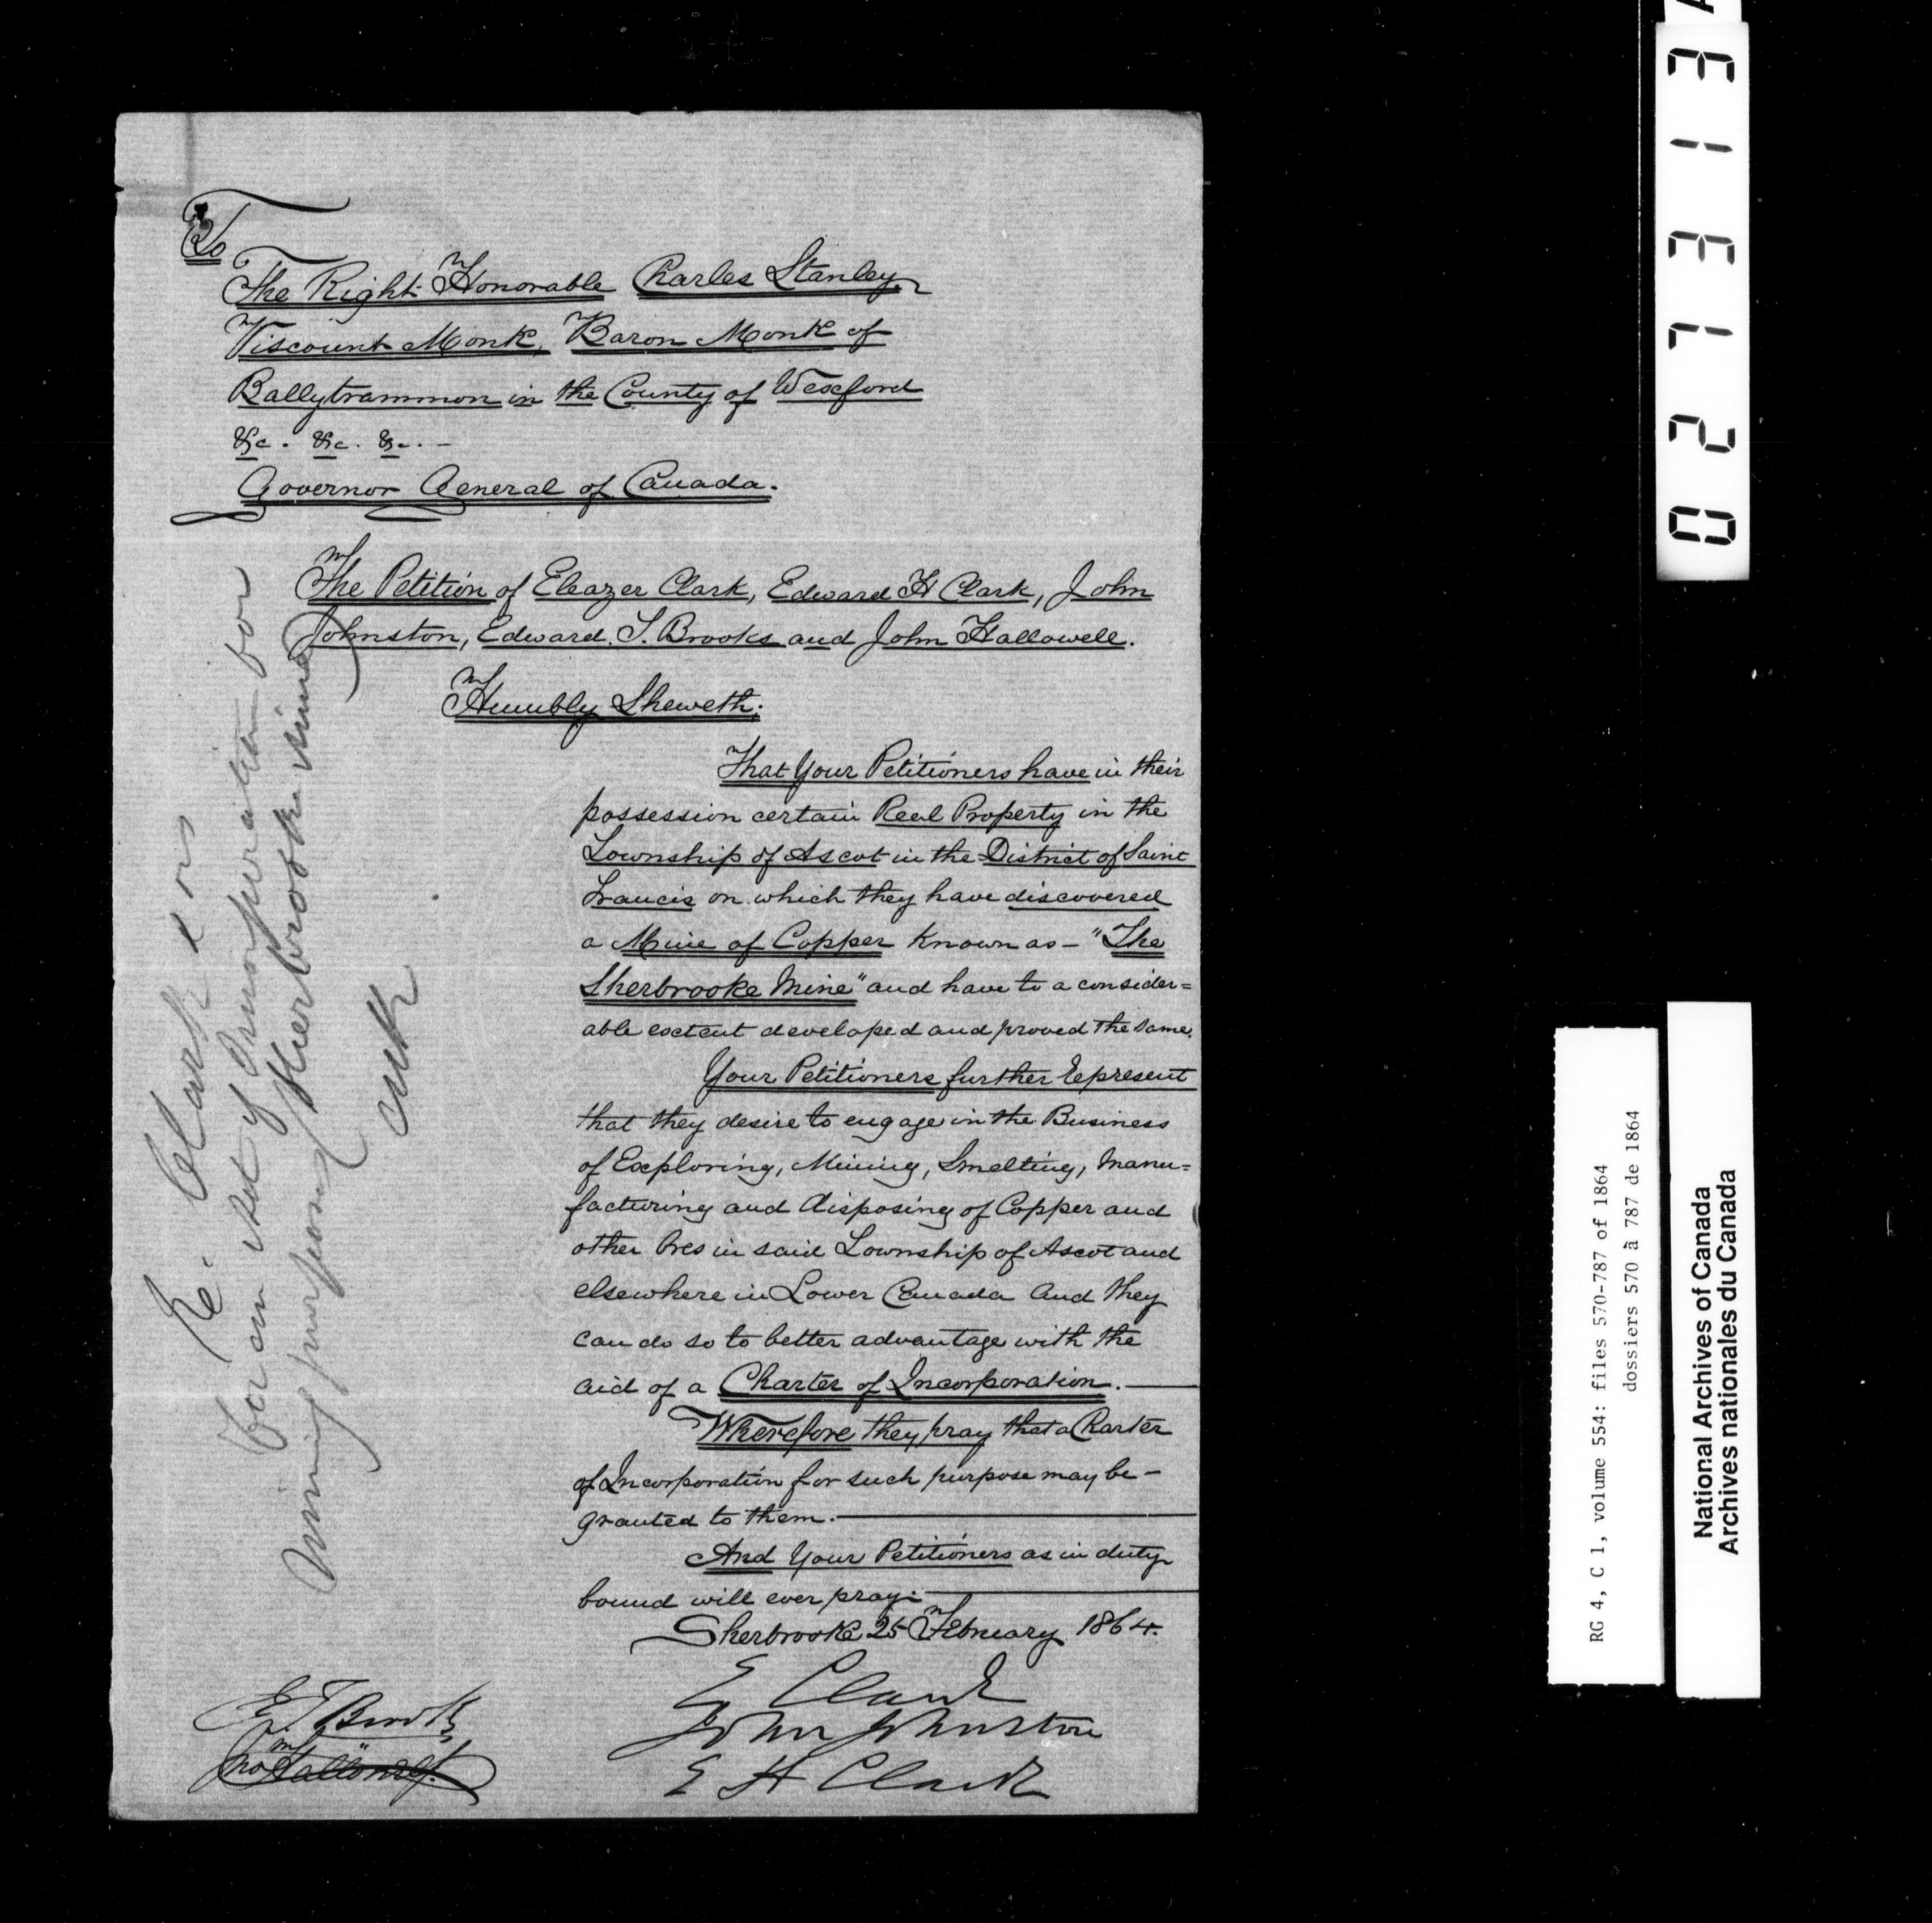 To
The Right Honorable Charles Stanley
Viscount Monk, Baron Monk of
Ballytrammon in the County of Wexford
&c. &c. &c. —
Governor General of Canada.
The Petition of Eleazer Clark, Edward H Clark, John
Johnston, Edward. T. Brooks and John Hallowell.
Humbly Sheweth;
That Your Petitioners have in their
possession certain Real Property in the
Township of Ascot in the District of Saint
Francis on which they have discovered
a Mine of Copper known as — "The
Sherbrooke Mine" and have to a consider=
able extent developed and proved the same.
Your Petitioners further Represent
that they desire to engage in the Business
of Exploring, Mining, Smelting, Manu=
facturing and disposing of Copper and
other Ores in said Township of Ascot and
elsewhere in Lower Canada and they
can do so to better advantage with the
aid of a Charter of Incorporation. —
Wherefore they pray that a Charter
of Incorporation for such purpose may be —
granted to them. —
And Your Petitioners as in duty
bound will ever pray. —
Sherbrooke 25 February 1864.
E Clark
John Johnston
E H Clark
E T Brooks
Jno Hallowell
E. Clark & ors
for an Act of Incorporation for
mining purposes (Sherbrooke Mine)
027313
RG 4, C 1, volume 554: files 570-787 of 1864
dossiers 570 à 787 de 1864
National Archives of Canada
Archives nationales du Canada